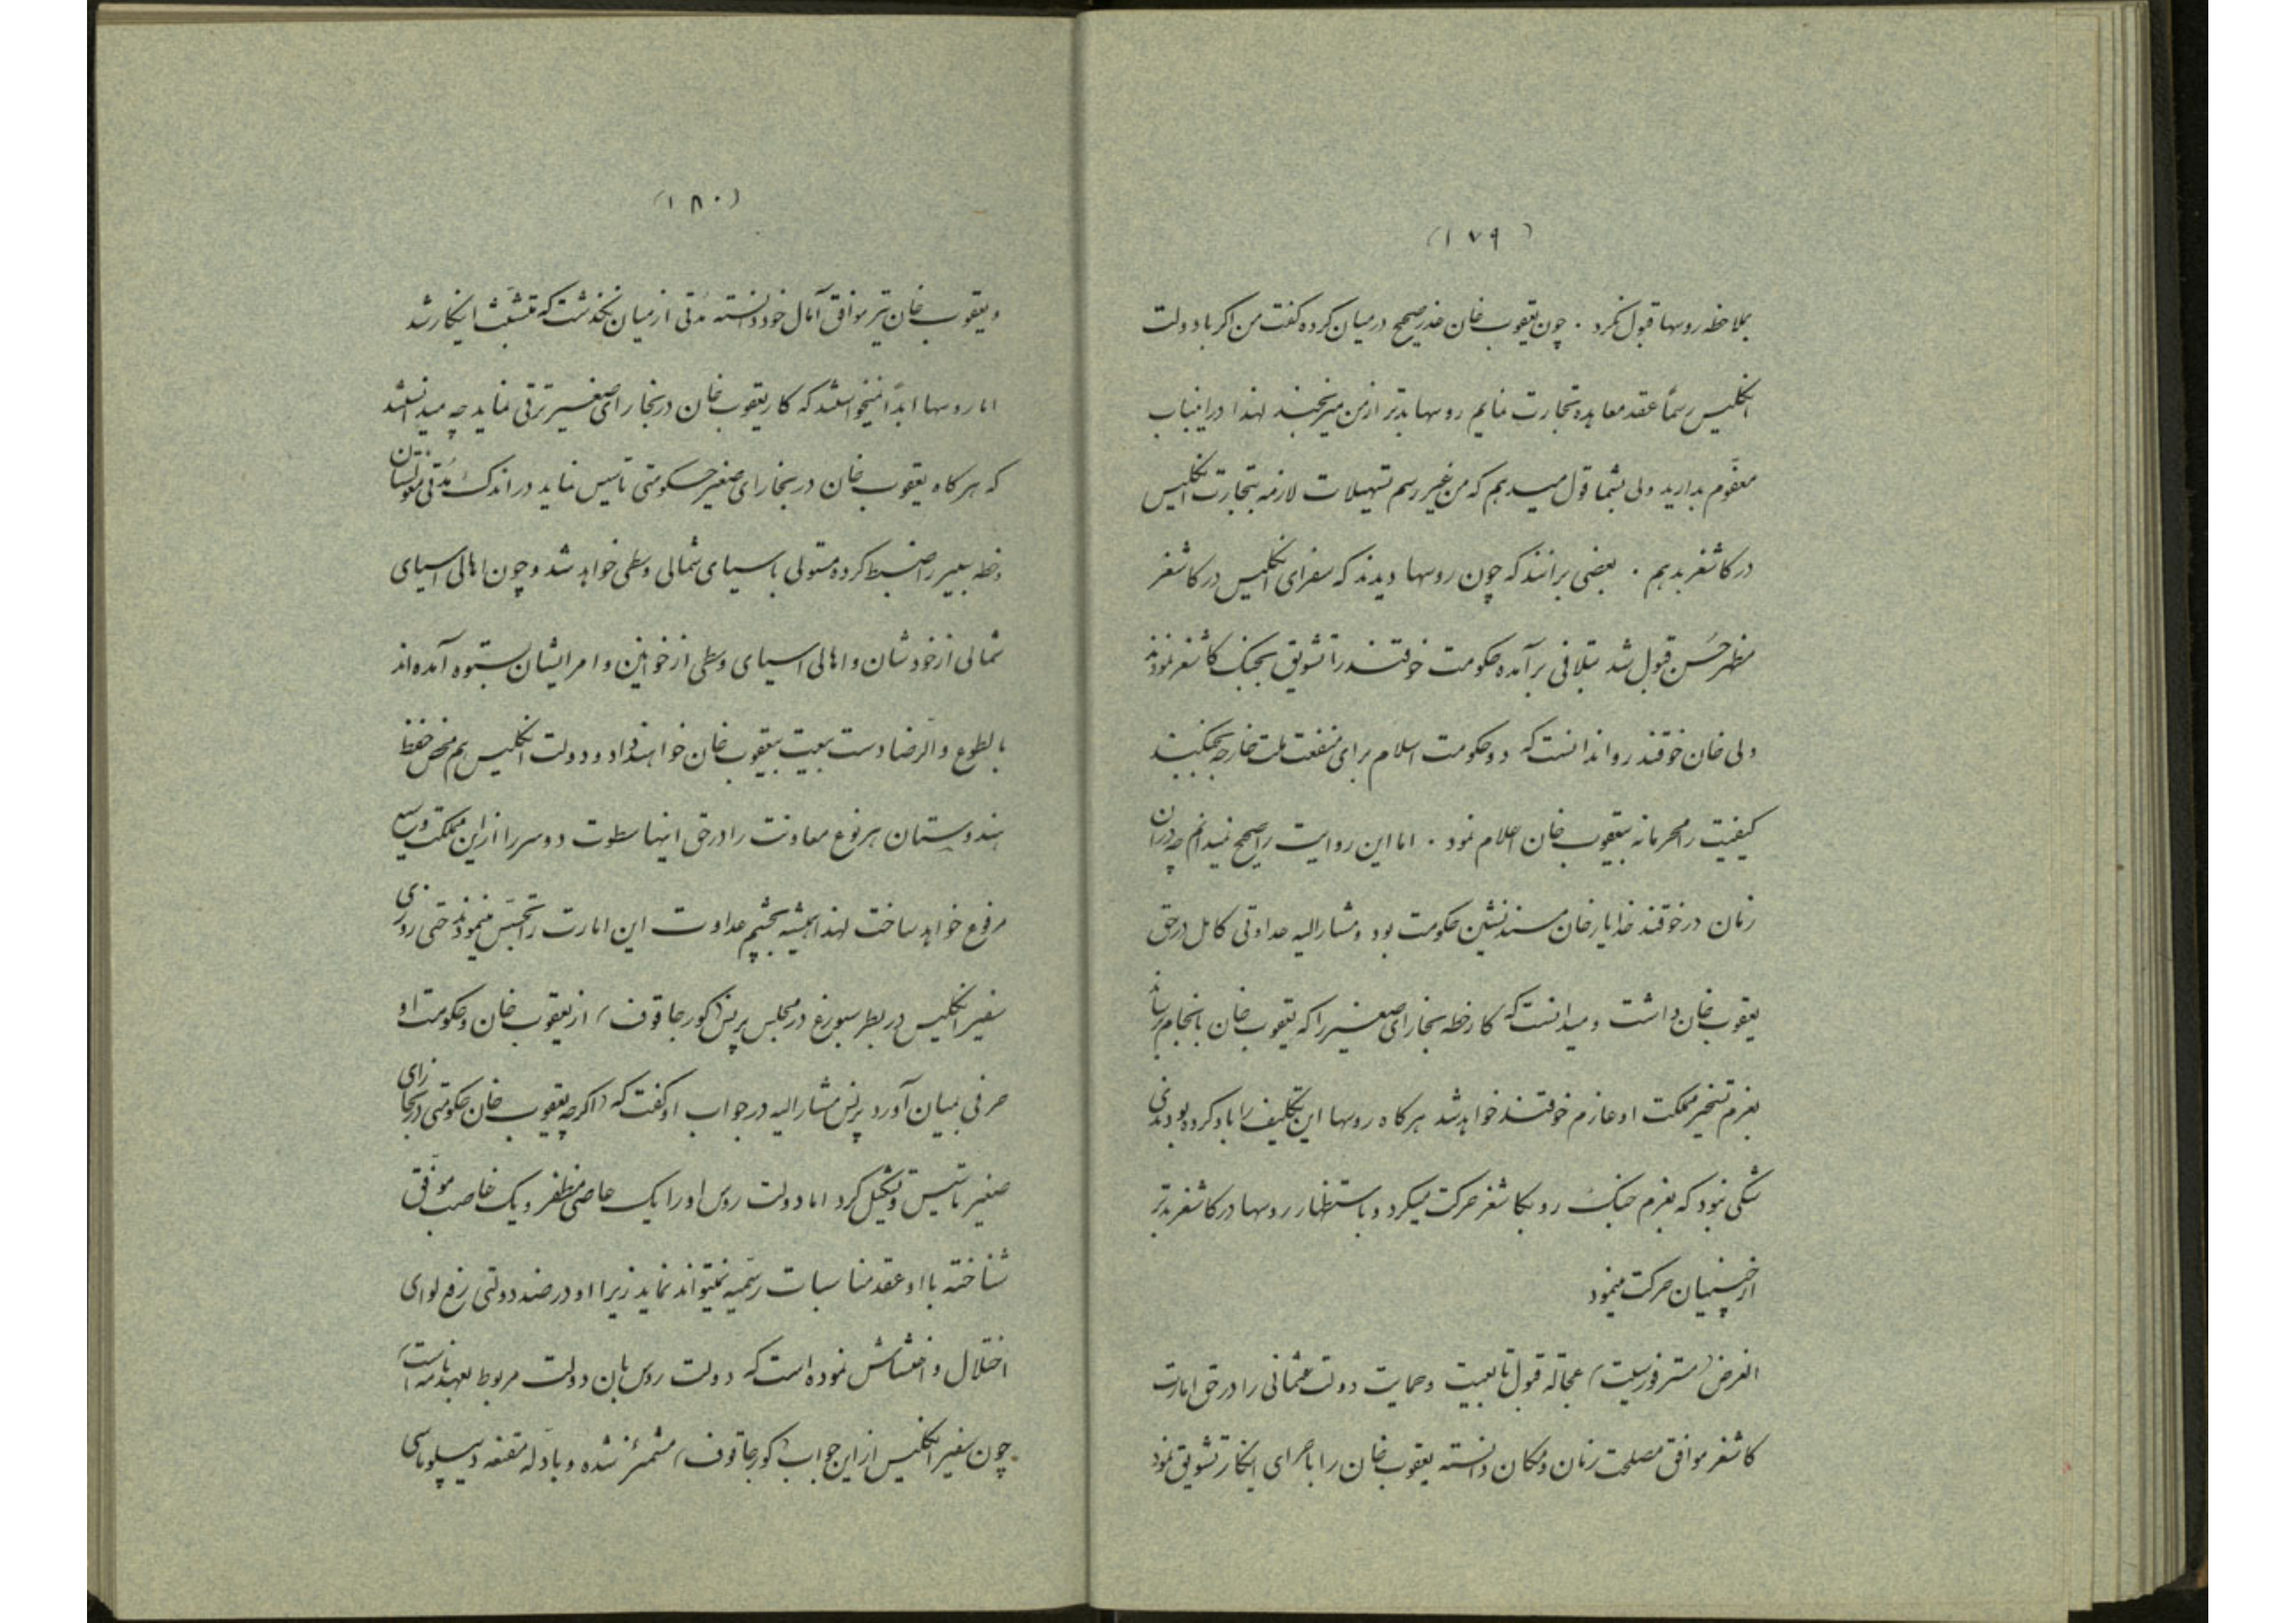 (۱۷۹)
بملاحظه روسها قبول نکرد . چون یعقوب خان عذر صحیح در میان کرده کفت من اکر با دولت
انکلیس رسماً عقد معاهده تجارت نمایم روسها بدتر از من میرنجند لهذا در اینباب
معفوم بدارید ولی بشما قول میدهم که من غیر رسم تسهیلات لازمه بتجارت انکلیس
در کاشغر بدهم . بعضی برانند که چون روسها دیدند که سفرای انکلیس در کاشغر
مظهر حُسن قبول شد بتلافی برآمده حکومت خوقند را تشویق بجنک کاشغر نمودند
ولی خان خوقند روا ندانست که دو حکومت اسلام برای منفعت ملت خارجه بجنکیند
کیفیت را محرمانه بیعقوب خان اعلام نمود . اما این روایت را صحیح نمیدانم چه در آن
زمان در خوقند خدایار خان مسند نشین حکومت بود و مشارالیه عداوتی کامل در حق
یعقوب خان داشت و میدانست که کار خطه بخارای صغیر را که یعقوب خان بانجام رساند
بعزم تسخیر مملکت او عازم خوقند خواهد شد هرکاه روسها این تکلیف را باو کرده بودندی
شکی نبود که بعزم جنک رو بکاشغر حرکت میکرد و باستظهار روسها در کاشغر بدتر
از چینیان حرکت مینمود
الغرض (مستر فورسیت) عجالة قبول تابعیت و حمایت دولت عثمانی را در حق امارت
کاشغر موافق مصلحت زمان و مکان دانسته یعقوب خان را باجرای اینکار تشویق نمود
(۱۸۰)
و یعقوب خان نیز موافق آمال خود دانسته مُدتی از میان نکذشت که متشبّث اینکار شد
اما روسها ابداً نمیخواستند که کار یعقوب خان در بخارای صغیر ترقی نماید چه میدانستند
که هرکاه یعقوب خان در بخارای صغیر حکومتی تاسیس نماید در اندک مُدتی مغولستان
و خطه سیبیر را ضبط کرده مستولی باسیای شمالی و وسطی خواهد شد و چون اهالی اسیای
شمالی از خودشان و اهالی اسیای وسطی از خوانین و امرایشان بستوه آمده‌اند
بالطوع و الرّضا دست بیعت بیعقوب خان خواهند داد و دولت انکلیس هم محض حفظ
هندوستان هر نوع معاونت را در حق اینها سطوت دوسر را از این مملکت وسیع
مرفوع خواهد ساخت لهذا همیشه بچشم عداوت این امارت را تجسّس مینمودند حتی روزی
سفیر انکلیس در پطرسبورغ در مجلس پرنس (کورجاقوف) از یعقوب خان و حکومت او
حرفی بمیان آورد پرنس مشارالیه در جواب او کفت که (اکرچه یعقوب خان حکومتی در بخارای
صغیر تاسیس و تشکیل کرد اما دولت روس او را یک عاصی مظفر و یک غاصب موفّق
شناخته با او عقد مناسبات رسمیّه نمیتواند نماید زیرا او در ضد دولتی رفع لوای
اختلال و اغتشاش نموده است که دولت روس بان دولت مربوط بعهدنامه است)
چون سفیر انکلیس از این جواب (کورجاقوف) مشمئز نشده و بادلّه مقنعه دیپلوماسی